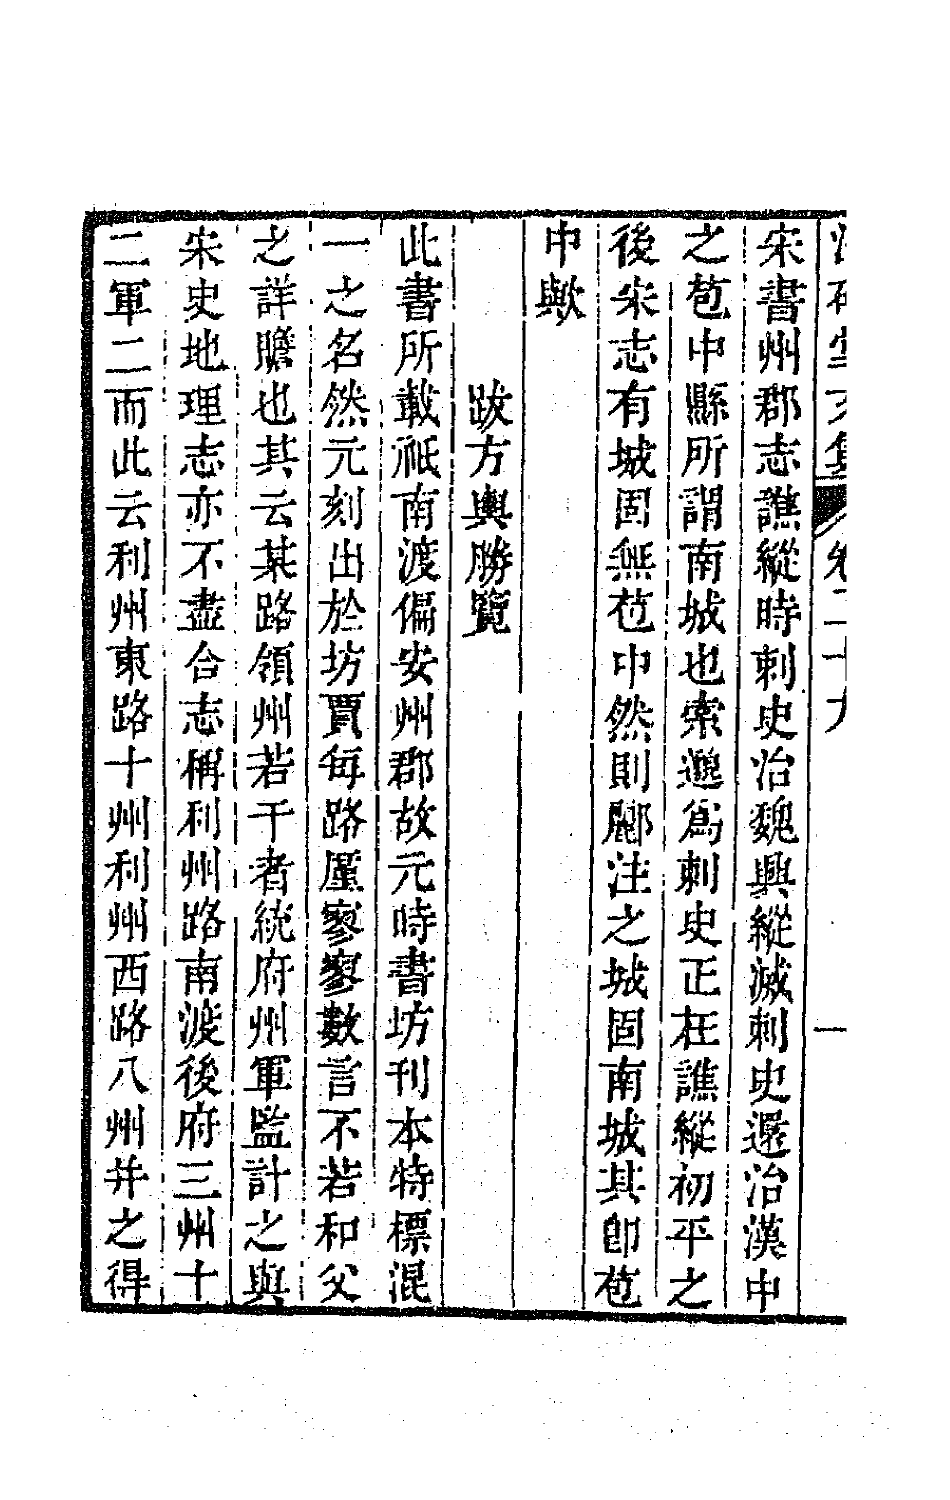 宋書州郡志譙縱時刺史治魏興縱滅刺史還治漢中
之苞中縣所謂南城也索邈爲刺史正在譙縱初平之
後宋志有城固無苞中然則酈注之城固南城其卽苞
中歟
跋方輿勝覽
此書所載祗南渡偏安州郡故元時書坊刊本特標混
一之名然元刻出於坊賈每路厪寥寥數言不若和父
之詳贍也其云某路領州若干者統府州軍監計之與
宋史地理志亦不盡合志稱利州路南渡後府三州十
二軍二而此云利州東路十州利州西路八州并之得